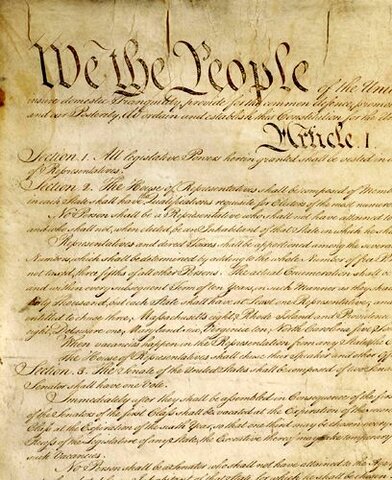 We the People of the Unit
insure domestic Tranquility, provide for the common defence, promo
and our Posterity, do ordain and establish this Constitution for the Un
Article. I.
Section. 1. All legislative Powers herein granted shall be vested in
of Representatives.
Section. 2. The House of Representatives shall be composed of Mem
in each State shall have the Qualifications requisite for Electors of the most numero
No Person shall be a Representative who shall not have attained
and who shall not, when elected, be an Inhabitant of that State in which he sha
Representatives and direct Taxes shall be apportioned among the sever
Numbers, which shall be determined by adding to the whole Number of free P
not taxed, three fifths of all other Persons. The actual Enumeration shall
and within every subsequent Term of ten Years, in such Manner as they sha
thirty Thousand, but each State shall have at Least one Representative; and
entitled to chuse three, Massachusetts eight, Rhode Island and Providence
eight, Delaware one, Maryland six, Virginia ten, North Carolina five, So
When vacancies happen in the Representation from any State, the
The House of Representatives shall chuse their Speaker and other Of
Section. 3. The Senate of the United States shall be composed of two Sena
Senator shall have one Vote.
Immediately after they shall be assembled in Consequence of the first
of the Senators of the first Class shall be vacated at the Expiration of the second
Class at the Expiration of the sixth Year, so that one third may be chosen every
Recess of the Legislature of any State, the Executive thereof may make tempora
such Vacancies.
No Person shall be a Senator who shall not have attained to the Age